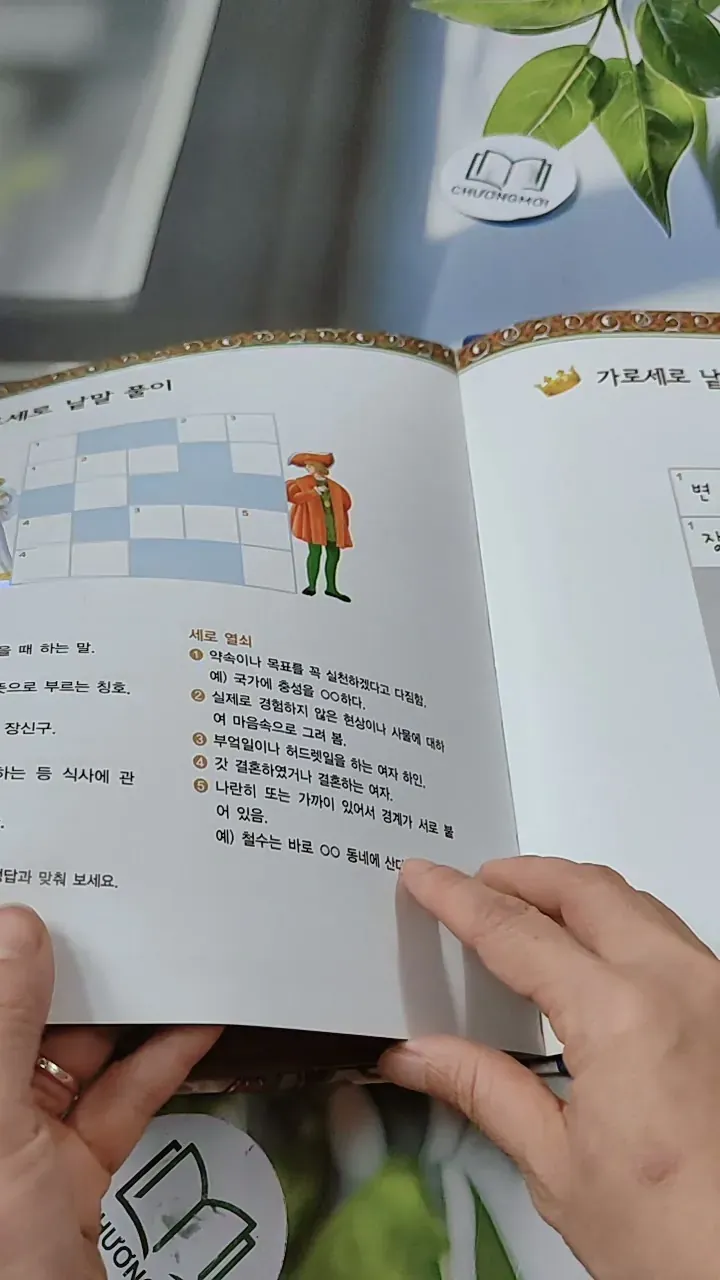 CHƯƠNGMỚI
세로 낱말 풀이
가로세로 낱
1 2 3
4 2
4 3 5
4
1 변
1
을 때 하는 말.
뜻으로 부르는 칭호.
장신구.
하는 등 식사에 관
정답과 맞춰 보세요.
세로 열쇠
1 약속이나 목표를 꼭 실천하겠다고 다짐함.
예) 국가에 충성을 ○○하다.
2 실제로 경험하지 않은 현상이나 사물에 대하
여 마음속으로 그려 봄.
3 부엌일이나 허드렛일을 하는 여자 하인.
4 갓 결혼하였거나 결혼하는 여자.
5 나란히 또는 가까이 있어서 경계가 서로 붙
어 있음.
예) 철수는 바로 ○○ 동네에 산다